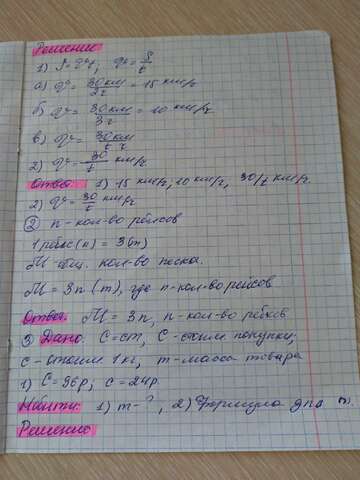 Решение
1) S = vt, v = S/t
а) v = 30 км/2 ч = 15 км/ч
б) v = 30 км/3 ч = 10 км/ч
в) v = 30 км/t ч
2) v = 30/t км/ч
Ответ: 1) 15 км/ч, 10 км/ч, 30/t км/ч.
2) v = 30/t км/ч
② n - кол-во рейсов
1 рейс (n) = 3 (т)
M - общ. кол-во песка.
M = 3n (т), где n - кол-во рейсов
Ответ: M = 3n, n - кол-во рейсов
3 Дано: C = cm, C - стоим покупки,
c - стоим 1 кг, m - масса товара
1) C = 96 р; c = 24 р
Найти: 1) m - ?, 2) Формула для m.
Решение